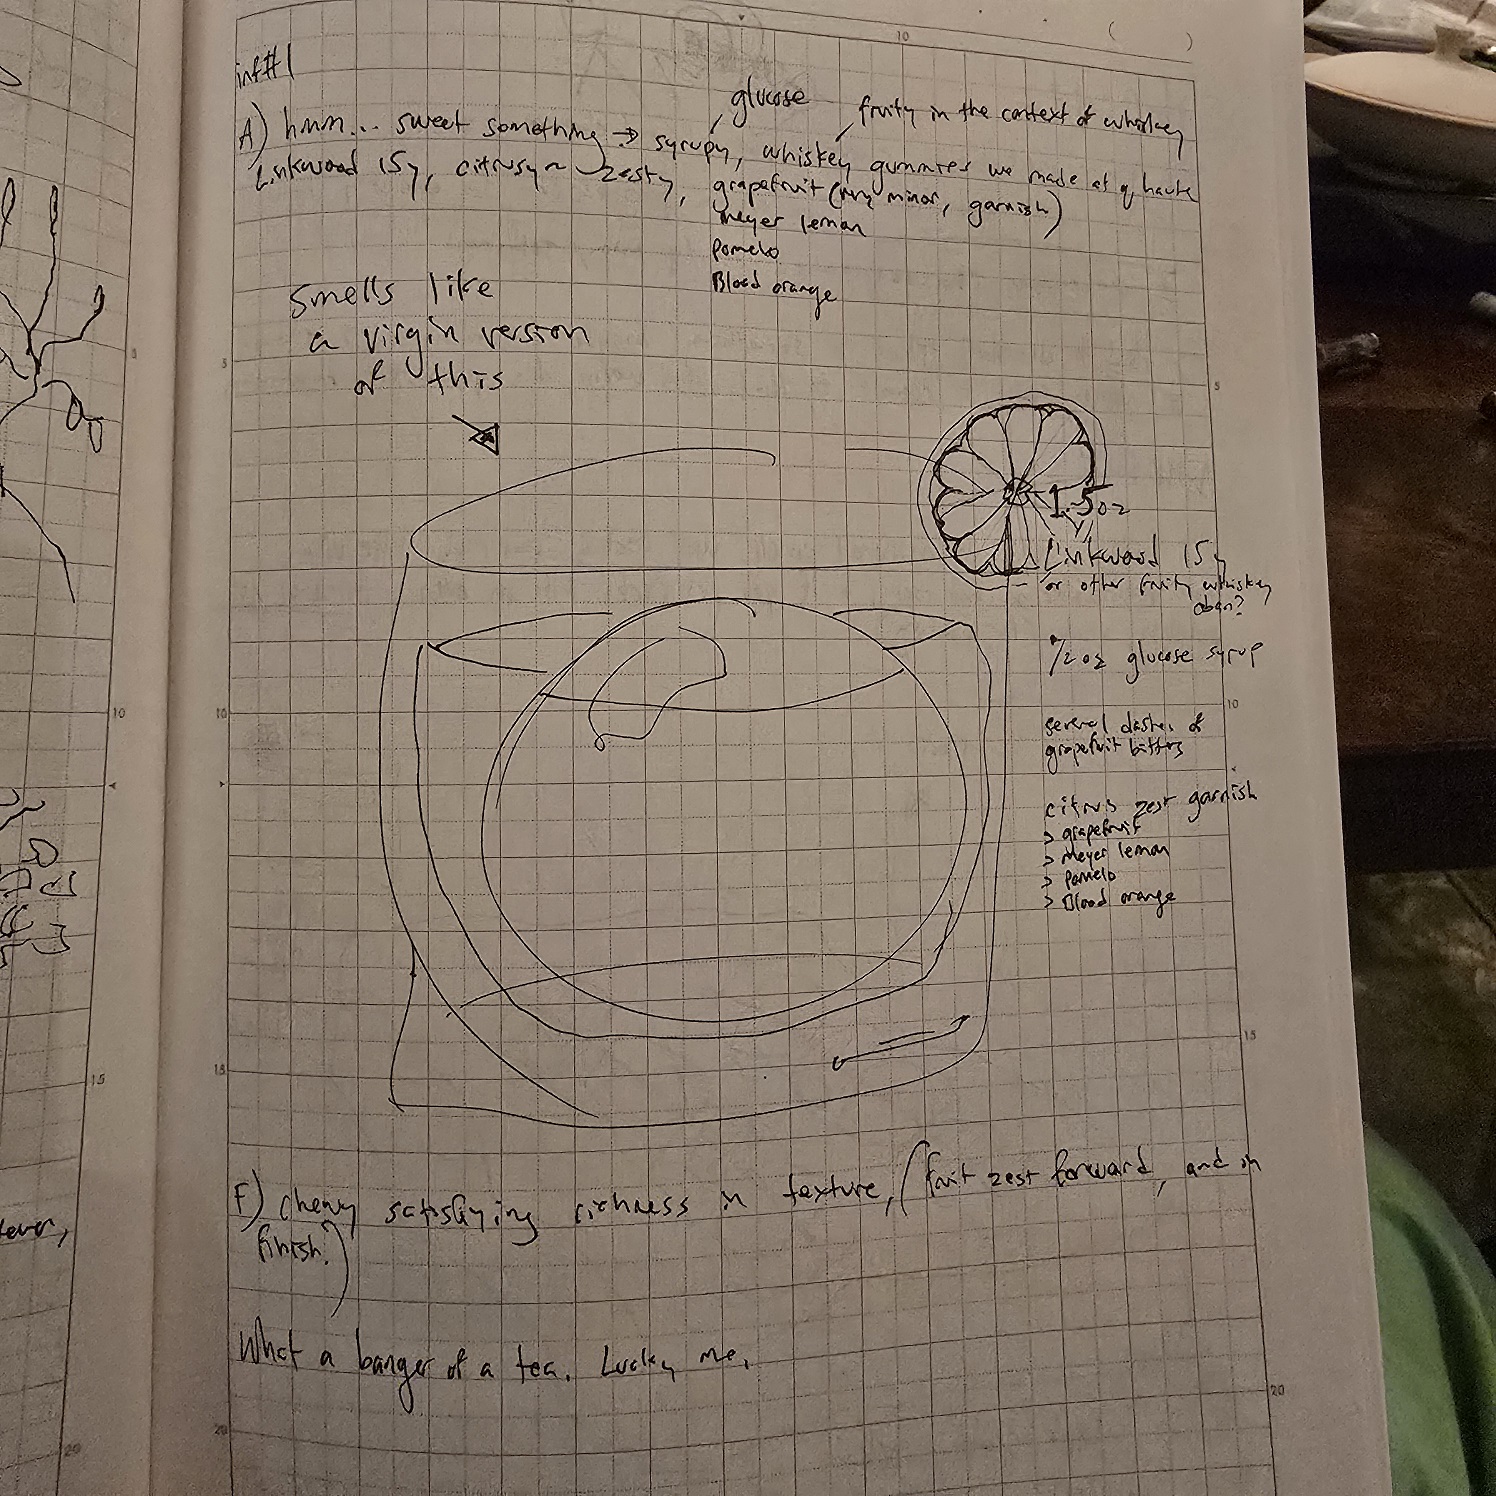 inf#1
glucose
fruity in the context of whiskey
A) hmm... sweet something → syrupy, whiskey gummies we made at q haute
Linkwood 15y, citrusy~ zesty, grapefruit (very minor, garnish)
meyer lemon
Pomelo
Blood orange
smells like
a virgin version
of this
1.5oz
Linkwood 15y
or other fruity whiskey
oban?
1/2 oz glucose syrup
several dashes of
grapefruit bitters
citrus zest garnish
> grapefruit
> Meyer lemon
> Pomelo
> Blood orange
F) chewy satisfying richness in texture, (fruit zest forward, and in
finish.)
What a banger of a tea. Lucky me.
ever,
5
10
15
20
5
10
15
20
10
15
20